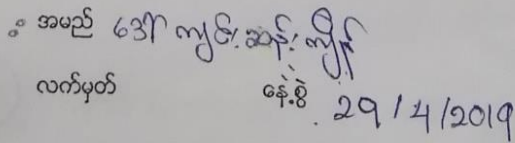 အမည် ဒေါ် ကျင်းဆန်းကျိန်
လက်မှတ် နေ့စွဲ 29/4/2019